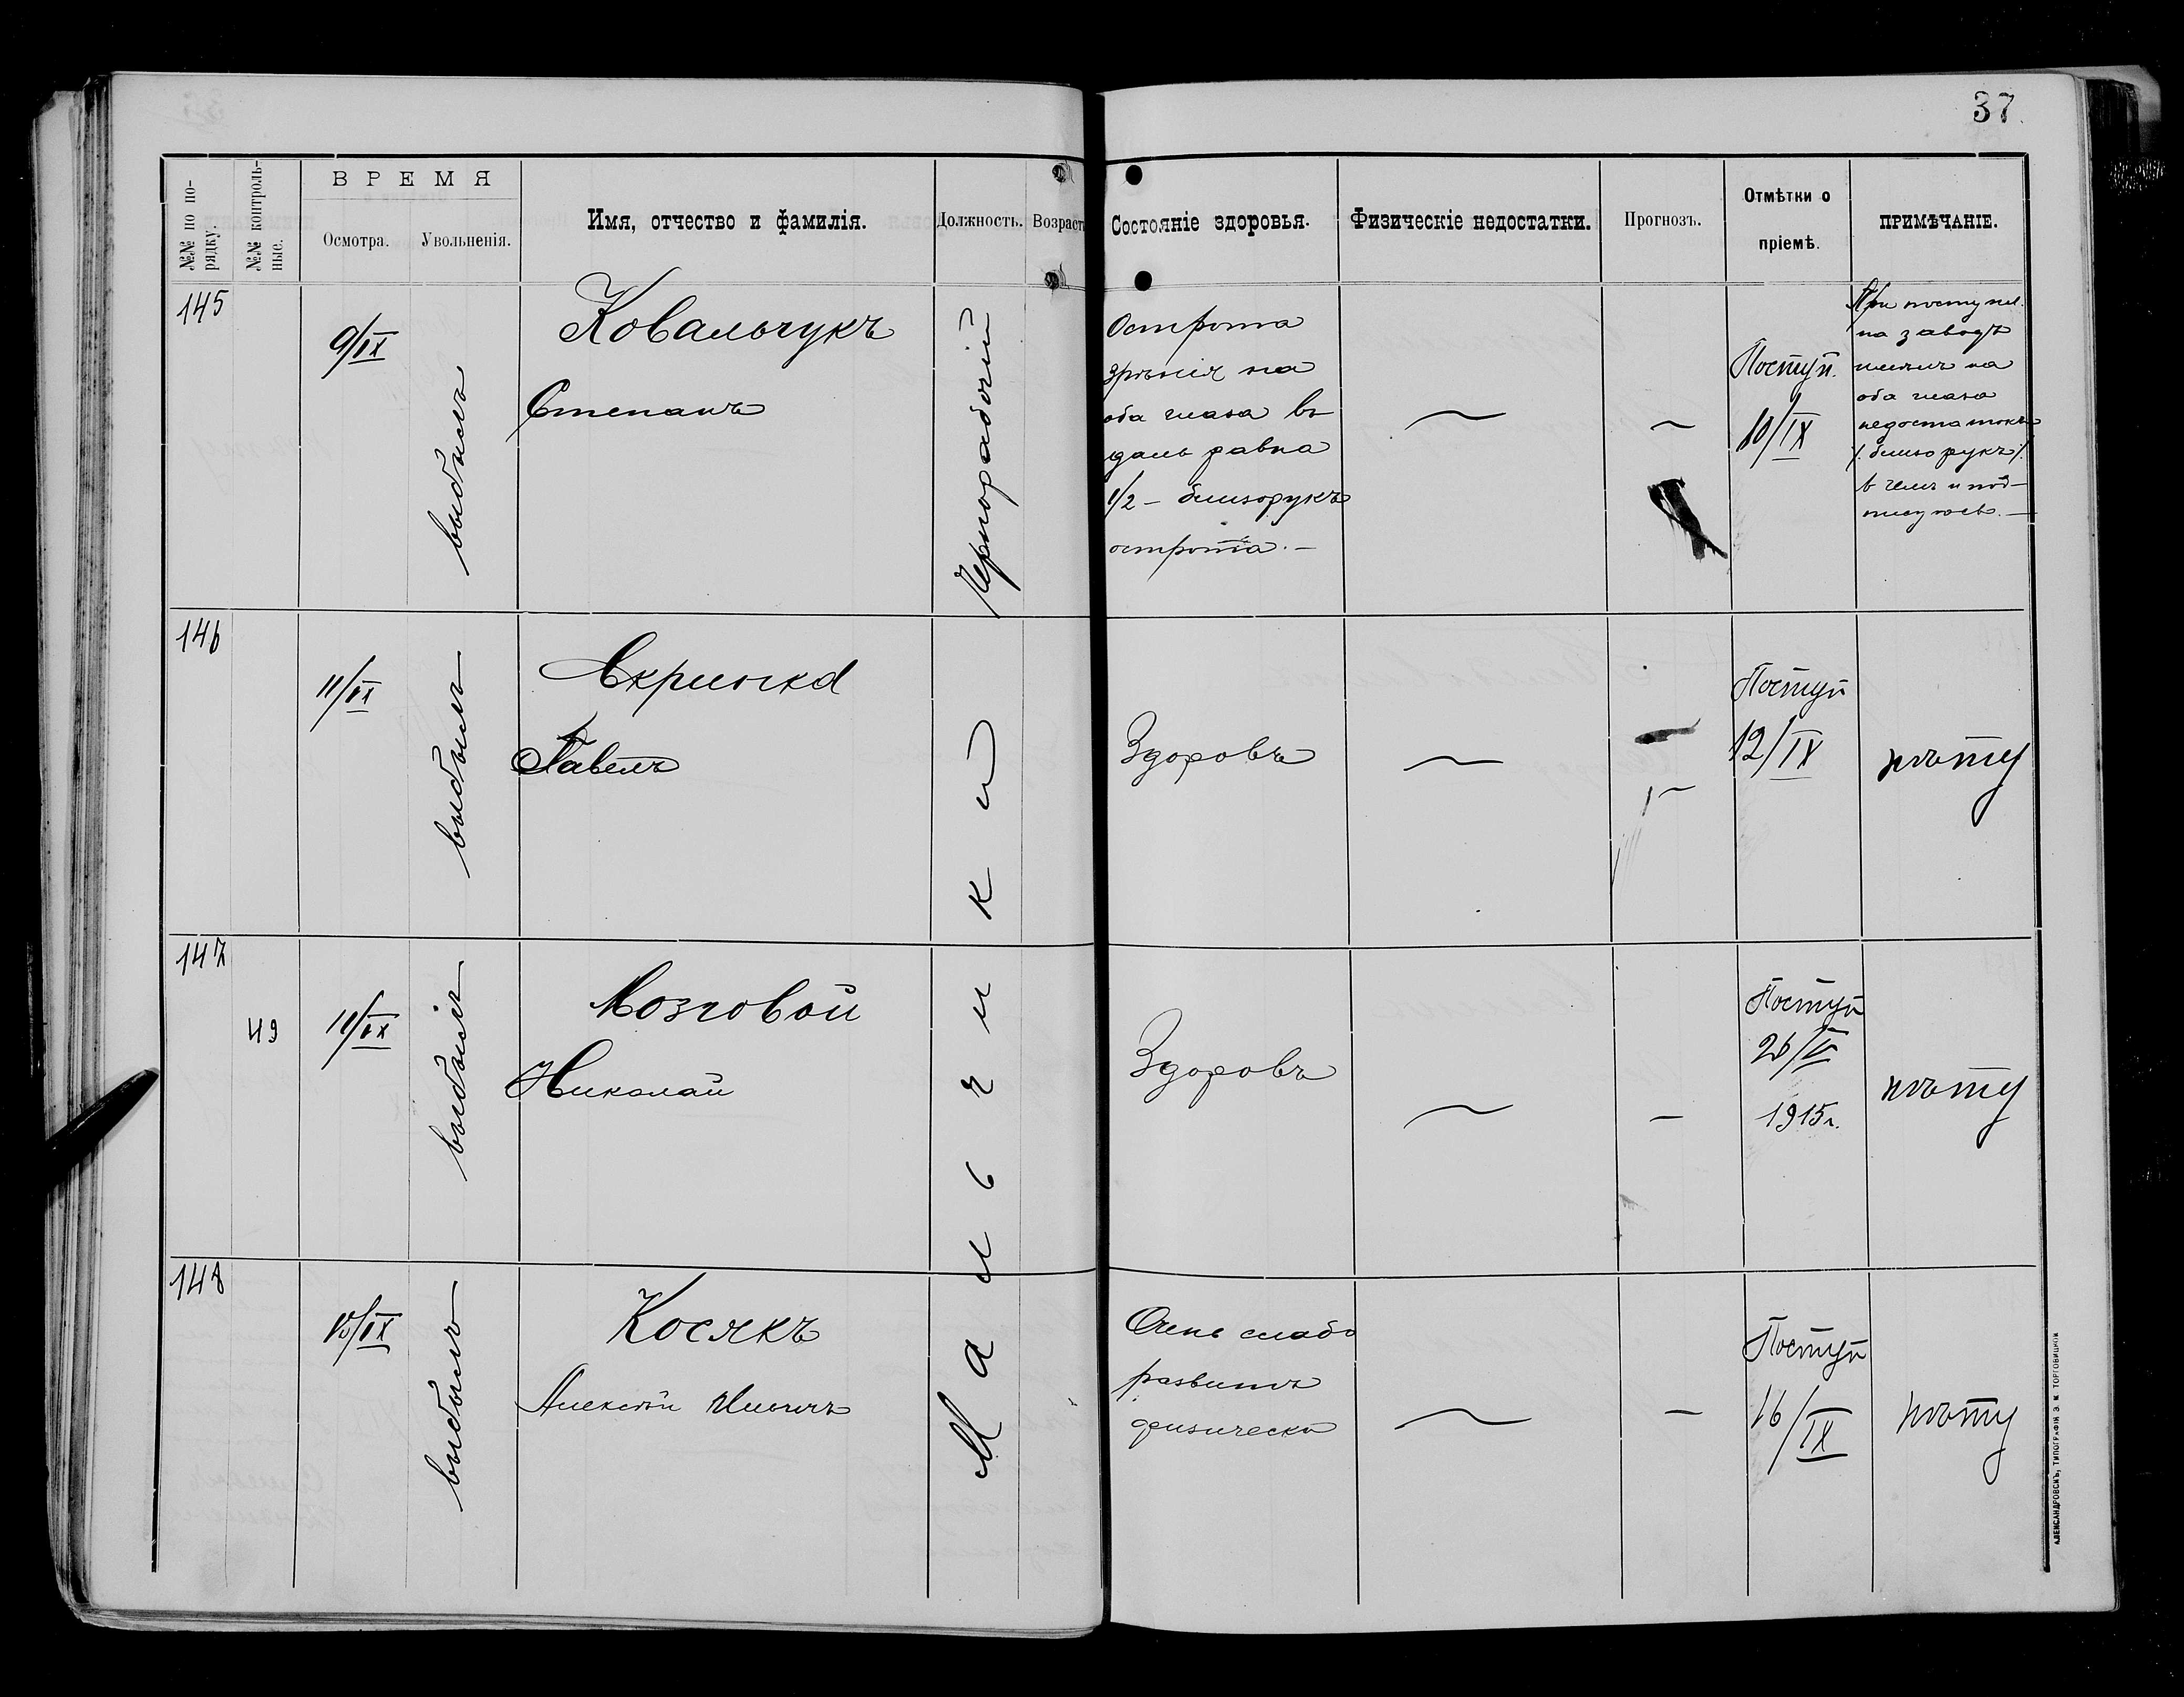 37.
№№ по по-
рядку.
№№ контроль-
ные.
ВРЕМЯ
Осмотра.
Увольненія.
Имя, отчество и фамилія.
Должность.
Возраст
Состояніе здоровья.
Физическіе недостатки.
Прогнозъ.
Отмѣтки о
пріемѣ.
ПРИМѢЧАНІЕ.
145
9/IX
выбылъ
Ковальчукъ
Степанъ
Чернорабочій
Острота
зрѣнія на
оба глаза въ
даль равна
1/2 - близорукъ
острота. —
—
—
Поступ.
10/IX
При поступл.
на заводъ
имѣлъ на
оба глаза
недостатокъ
/. близорукъ ./
в чемъ и под-
писуюсь. —
146
11/IX
выбылъ
Скринка
Павелъ
Мальчикий
Здоровъ
—
—
Поступ
12/IX
нѣту
147
49
11/IX
выбылъ
Мозговой
Николай
Здоровъ
—
—
Поступ
1915 г.
нѣту
148
15/IX
выбылъ
Косякъ
Алексѣй Ильичъ
Очень слабо
развитъ
физически
—
—
Поступ
16/IX
нѣту
АЛЕКСАНДРОВСКЪ, ТИПОГРАФІЯ Э. М. ТОРГОВИЦКОЙ